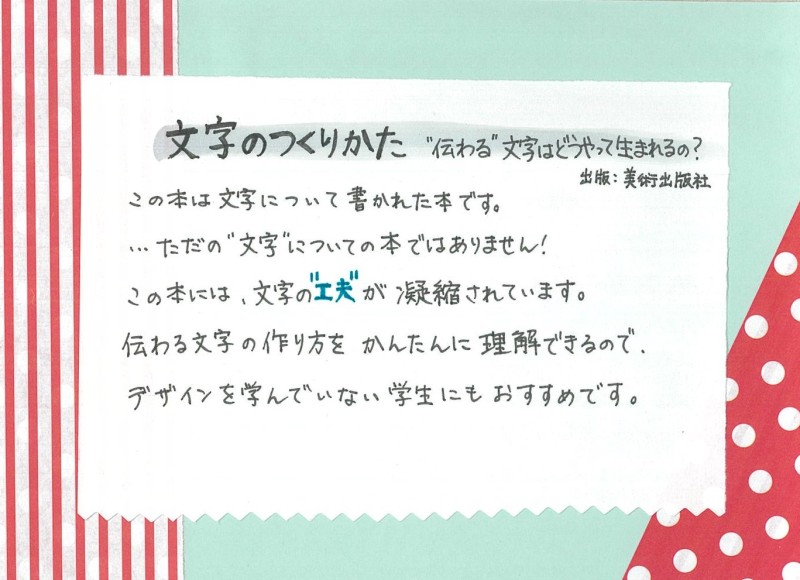 文字のつくりかた "伝わる"文字はどうやって生まれるの?
出版:美術出版社
この本は文字について書かれた本です。
…ただの"文字"についての本ではありません!
この本には、文字の"工夫"が凝縮されています。
伝わる文字の作り方をかんたんに理解できるので、
デザインを学んでいない学生にもおすすめです。